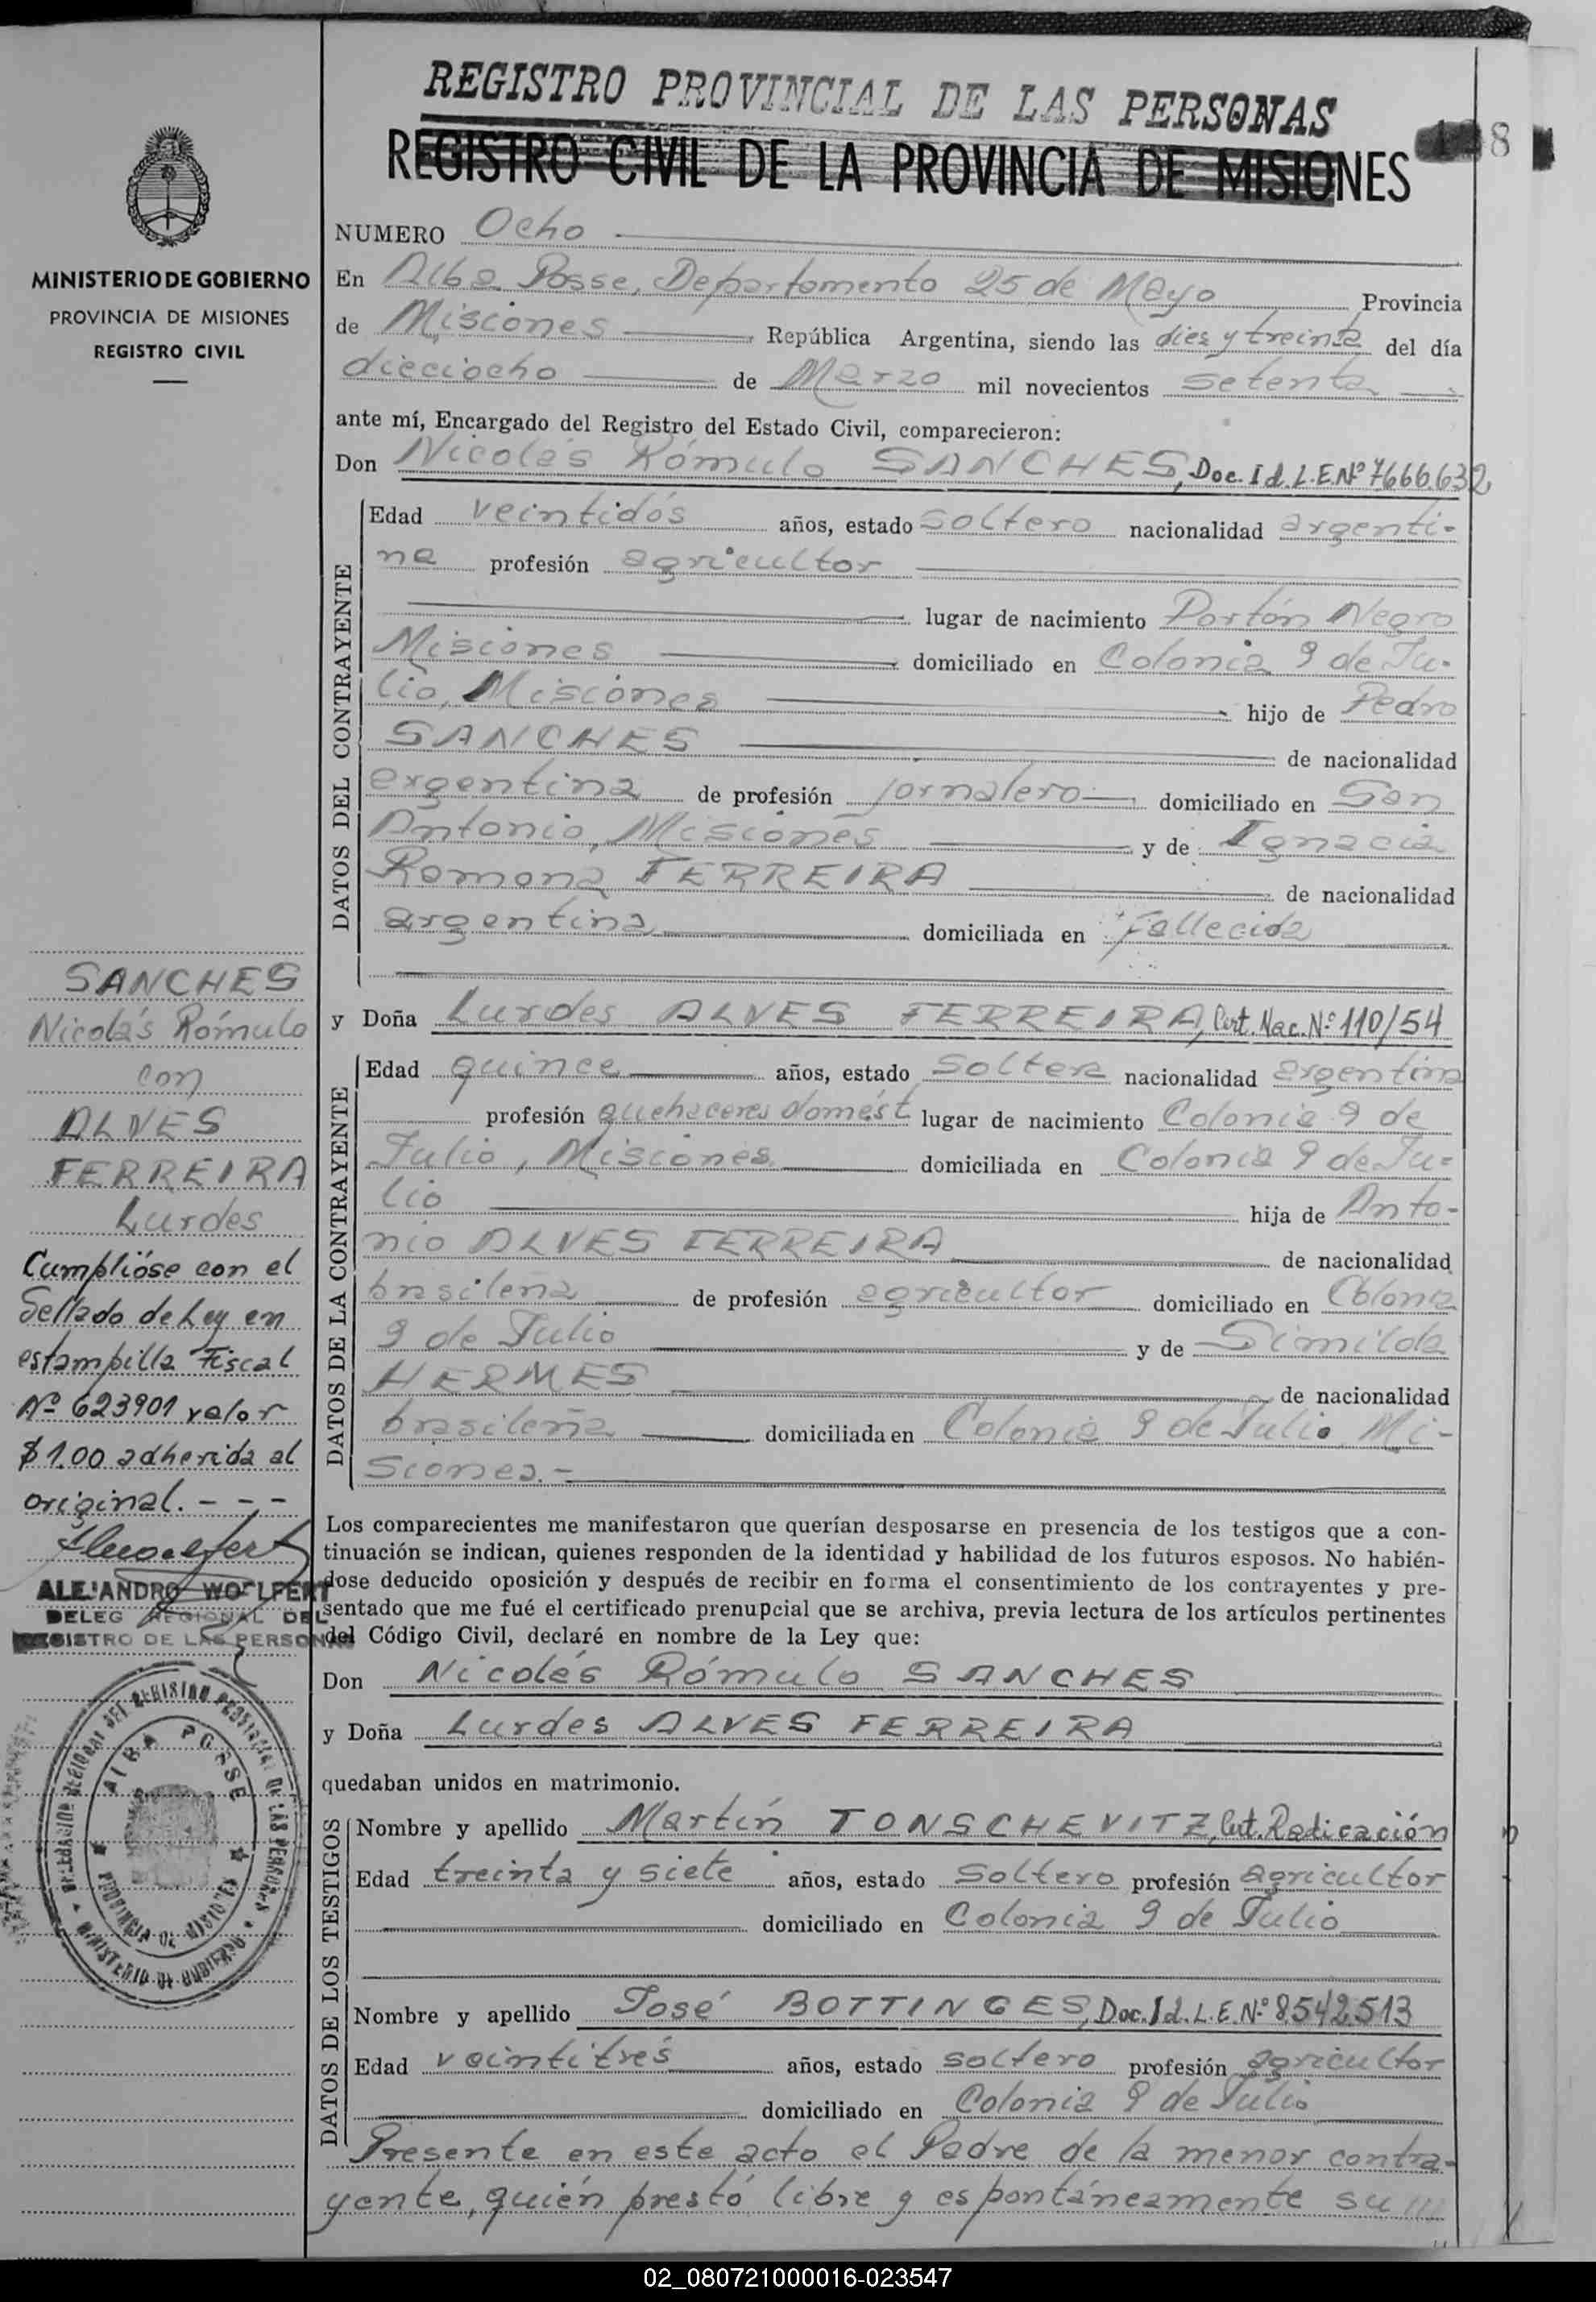 REGISTRO PROVINCIAL DE LAS PERSONAS
REGISTRO CIVIL DE LA PROVINCIA DE MISIONES
8
MINISTERIO DE GOBIERNO
PROVINCIA DE MISIONES
REGISTRO CIVIL
NUMERO Ocho
En Alba Posse, Departamento 25 de Mayo Provincia
de Misiones República Argentina, siendo las dies y treinta del día
dieciocho de Marzo mil novecientos setenta
ante mí, Encargado del Registro del Estado Civil, comparecieron:
Don Nicolás Rómulo SANCHES, Doc. Id. L.E. Nº 7666.632
DATOS DEL CONTRAYENTE
Edad veintidós años, estado soltero nacionalidad argenti-
na profesión agricultor
lugar de nacimiento Portón Negro
Misiones domiciliado en Colonia 9 de Ju-
lio, Misiones hijo de Pedro
SANCHES de nacionalidad
argentina de profesión jornalero domiciliado en San
Antonio, Misiones y de Ignacia
Romona FERREIRA de nacionalidad
argentina domiciliada en Fallecida
y Doña Lurdes ALVES FERREIRA, Cert. Nac. Nº 110/54
DATOS DE LA CONTRAYENTE
Edad quince años, estado soltera nacionalidad argentina
profesión quehaceres domést. lugar de nacimiento Colonia 9 de
Julio, Misiones domiciliada en Colonia 9 de Ju-
lio hija de Anto-
nio ALVES FERREIRA de nacionalidad
brasileña de profesión agricultor domiciliado en Colonia
9 de Julio y de Similda
HERMES de nacionalidad
brasileña domiciliada en Colonia 9 de Julio, Mi-
siones.-
Los comparecientes me manifestaron que querían desposarse en presencia de los testigos que a con-
tinuación se indican, quienes responden de la identidad y habilidad de los futuros esposos. No habién-
dose deducido oposición y después de recibir en forma el consentimiento de los contrayentes y pre-
sentado que me fué el certificado prenupcial que se archiva, previa lectura de los artículos pertinentes
del Código Civil, declaré en nombre de la Ley que:
Don Nicolás Rómulo SANCHES
y Doña Lurdes ALVES FERREIRA
quedaban unidos en matrimonio.
DATOS DE LOS TESTIGOS
Nombre y apellido Martín TONSCHEVITZ, Cert. Radicación
Edad treinta y siete años, estado soltero profesión agricultor
domiciliado en Colonia 9 de Julio
Nombre y apellido José BOTTINGES, Doc. Id. L.E. Nº 8.542.513
Edad veintitrés años, estado soltero profesión agricultor
domiciliado en Colonia 9 de Julio
Presente en este acto el Padre de la menor contra-
yente, quién prestó libre y espontáneamente su
SANCHES
Nicolás Rómulo
con
ALVES
FERREIRA
Lurdes
Cumplióse con el
Sellado de Ley en
estampilla Fiscal
Nº 623901 valor
$ 1.00 adherida al
original. - - -
ALEJANDRO WOLFERT
DELEG REGIONAL DEL
REGISTRO DE LAS PERSONAS
DELEGACION REGIONAL DEL REGISTRO PROVINCIAL DE LAS PERSONAS
ALBA POSSE
PROVINCIA DE MISIONES
MINISTERIO DE GOBIERNO
02_080721000016-023547